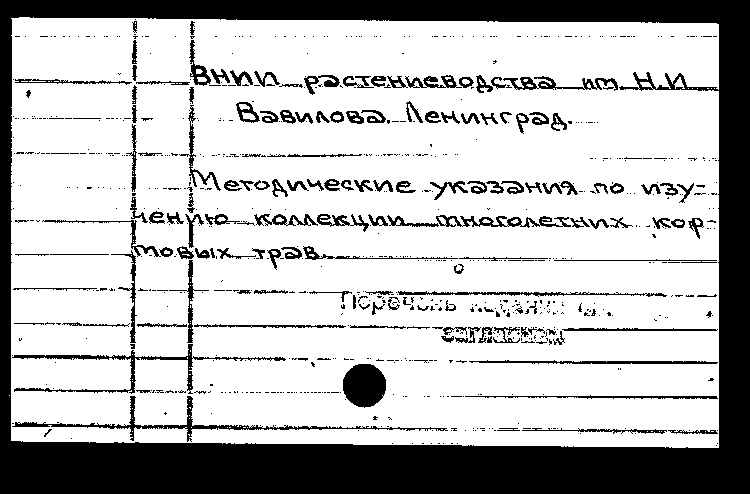 ВНИИ растениеводства им. Н.И
Вавилова. Ленинград.
Методические указания по изу-
чению коллекции многолетних кор-
мовых трав.
Перечень изданий см.
заглавием